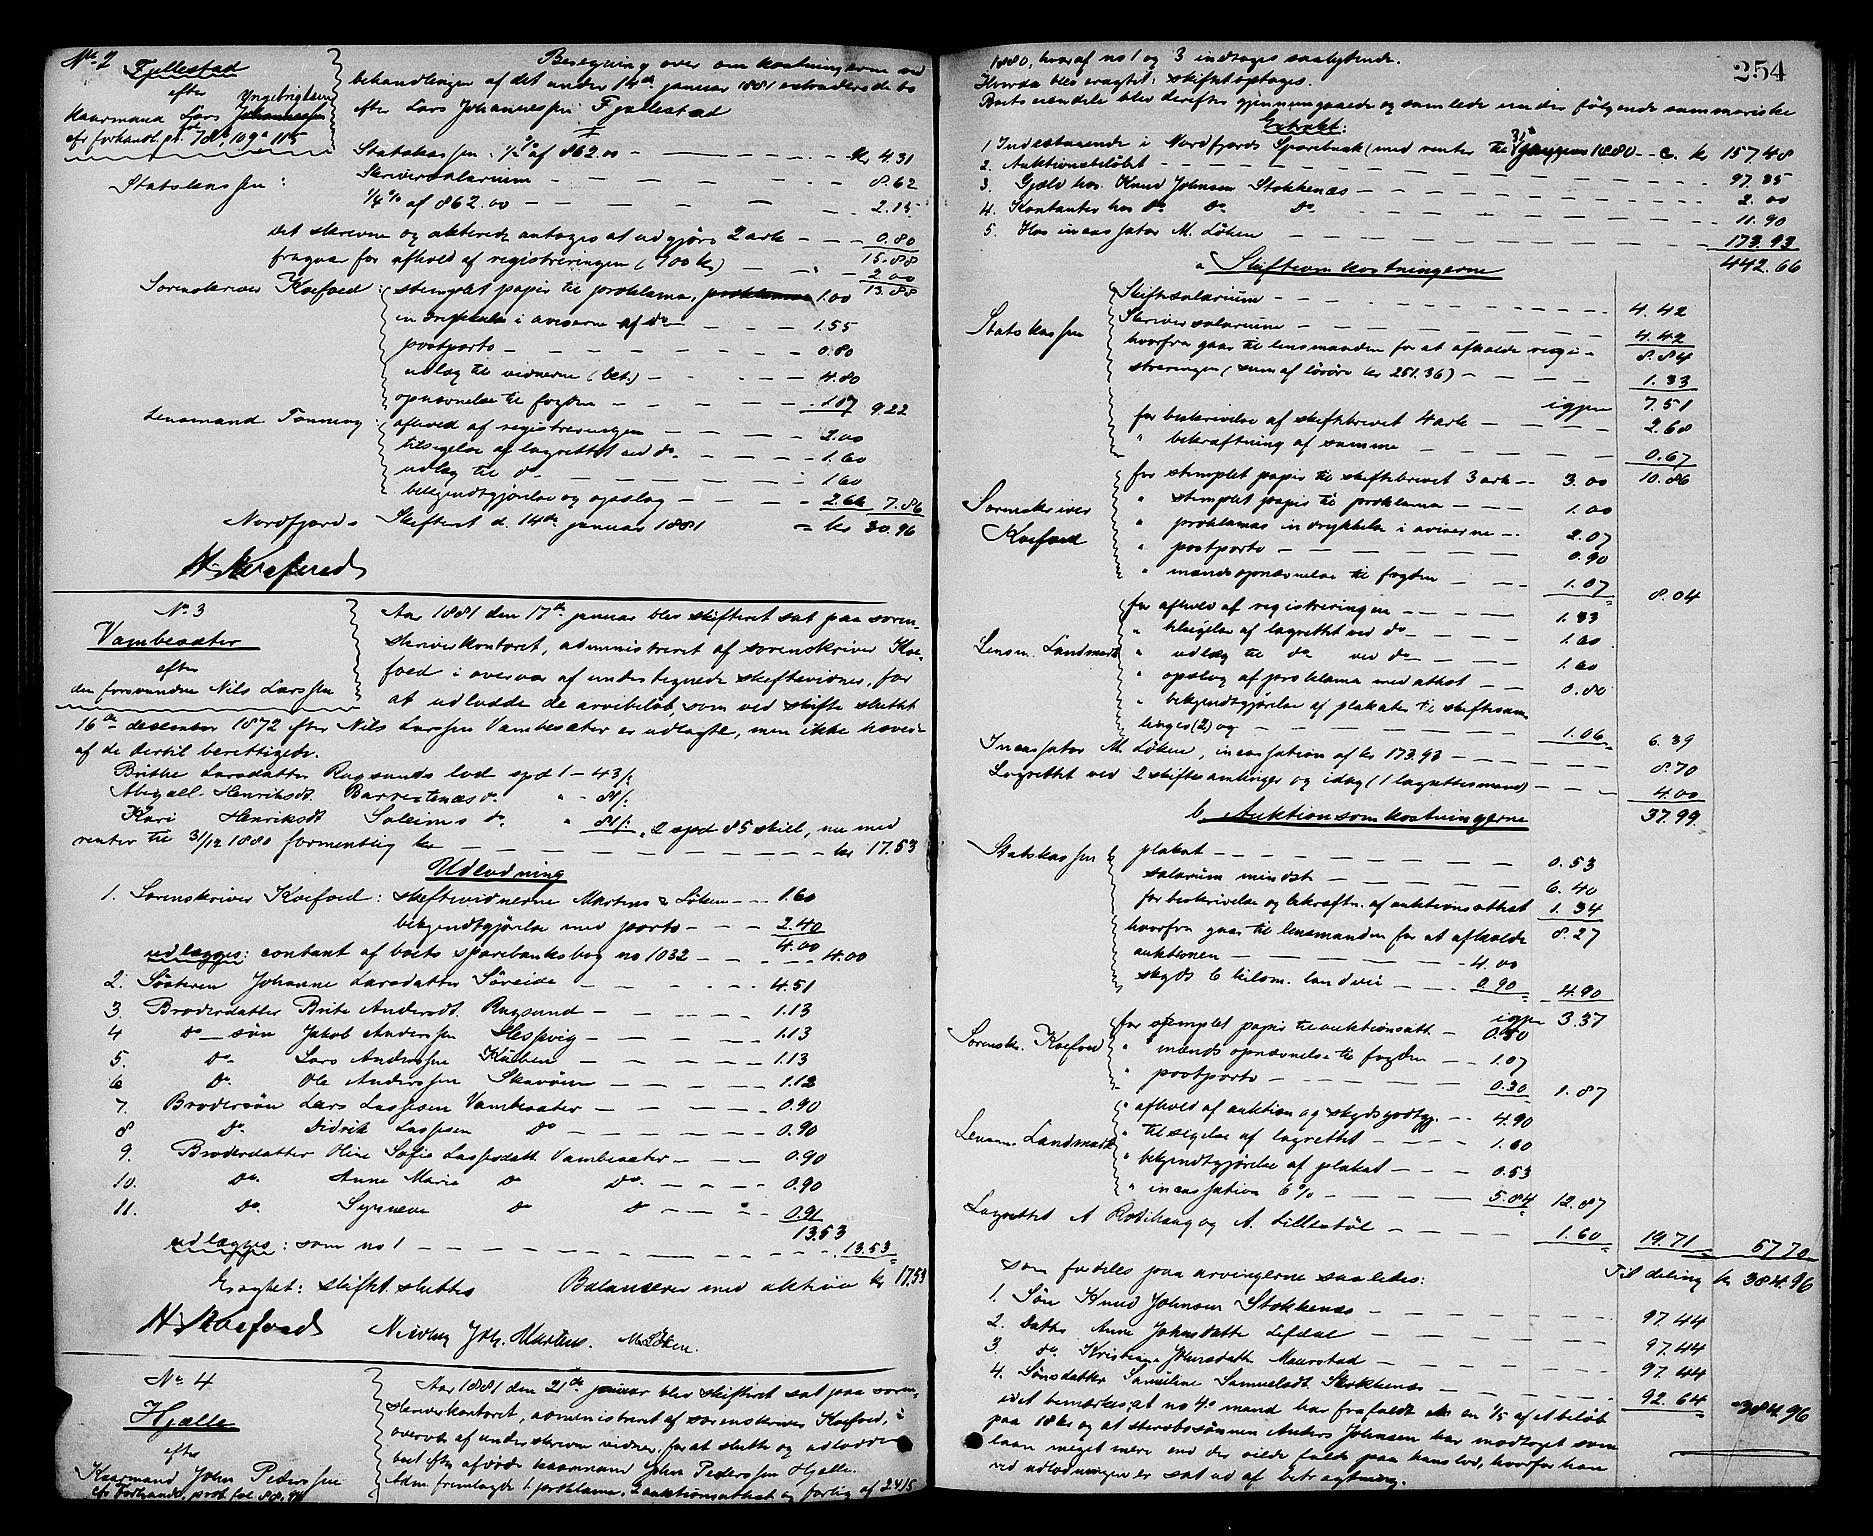 No 2
Fjellestad
efter Yngebrigtsen
Kaarmand Lars Johannessen
cfr forhandl. pr. fol 78b, 109a 115
Beregning over omkostningerne ved
behandlingen af det under 14de januar 1881 extraderede bo
efter Lars Johannessen Fjellestad
Statskassen: 1/2 % af 862.00 — kr 4.31
Statskassen: Skriversalarium — 8.62
1/4 % af 862.00 — 2.15
det skrevne og akterede antages at udgjøre 2 ark — 0.80
15.88
fragaar for afhold af registreringen (900 kr) — 2.00
13.88
Sorenskriver Koefoed: stemplet papir til proklama 1.00
indrykkelse i aviserne af do — 1.55
postporto — 0.80
udlæg til vidnerne (bet.) — 4.80
opnævnelse til fogden — 1.07 9.22
Lensmand Tonning: afhold af registreringen — 2.00
tilsigelse af lagrettet ved do — 1.60
udlæg til do — 1.60
bekjendtgjørelse og opslag — 2.66 7.86
Nordfjords Skifteret d. 14de januar 1881 = kr 30.96
H. Koefoed
No 3
Vambesæter
efter
den forsvundne Nils Larssen
Aar 1881 den 17de januar blev skifteret sat paa soren-
skriverkontoret, administreret af sorenskriver Koe-
foed i overvær af undertegnede skiftevidner, for
at udlodde de arvebeløb, som ved skifte sluttet
16de desember 1872 efter Nils Larssen Vambesæter er udlagte, men ikke hævet
af de dertil berettigede.
Brithe Larsdatter Rugsunds lod spd 1 – 43 /:
Abigael Henriksdt. Barrestenæs do " – 81 /:
Kari Henriksdt Soleims do " 81 /: 2 spd 85 skill, nu med
renter til 31/12 1880 formentlig kr — kr 17.53
Udlodning
1. Sorenskriver Koefoed: skiftevidnerne Martens & Løken — 1.60
bekjendtgjørelse med porto — 2.40
4.00
udlægges: contant af boets sparebanksbog no 1032 — 4.00
2. Søsteren Johanne Larsdatter Søreide — 4.51
3. Broderdatter Brite Andersdt. Rugsund — 1.13
4 do — søn Jakob Anderssen Hessvig — 1.13
5. do Lars Anderssen — 1.13
6 do Ole Anderssen — 1.12
7. Brodersøn Lars Lassesen Vambesæter — 0.90
8 do Didrik Lassesen do — 0.90
9. Broderdatter Oline Sofie Lassesdatt. Vambesæter — 0.90
10. do Anne Marie do do — 0.90
11. do Synneve do do — 0.91
13.53
udlægges: som no 1 — 13.53
Eragtet: skiftet sluttes Balancerer med aktiva kr 17.53
H. Koefoed Nicolay Joh. Martens. M Løken.
No 4
Hjelle
efter
Kaarmand John Pederssen
cfr Forhandl. prot. fol 88, 94
Aar 1881 den 21de januar blev skifteret sat paa soren-
skriverkontoret, administreret af sorenskriver Koefoed, i
overvær af underskrevne vidner, for at slutte og udlodde
boet efter afdøde kaarmand John Pederssen Hjelle.
Adm. fremlagde 1. proklama, 2 auktionsattest og forlig af 24/5
254
1880, hvoraf no 1 og 3 indtages saalydende.
Hvorda blev eragtet: skiftet optages.
Boets eiendele blev derefter gjennemgaaede og samlede under følgende summariske
Extrakt:
1 Indestaaende i Nordfjords Sparebank (med renter til 31te 1880 — c. kr 157.48
2. Auktionsbeløbet — 97.35
3. Gjæld hos Knud Johnsen Stokkenæs — 2.00
4. Kontanter hos do do do — 11.90
5. Hos incassator M. Løken — 173.93
442.66
a Skifteomkostningerne
Statskassen Skiftesalarium — 4.42
Skriversalarium — 4.42
8.84
hvorfra gaar til lensmanden for at afholde regi-
streringen (sum af løsøre kr 251.36) — 1.33
igjen 7.51
for beskrivelse af skiftebrevet 4 ark — 2.68
" bekræftning af samme — 0.67
10.86
Sorenskriver Koefoed for stemplet papir til skiftebrevet 3 ark — 3.00
" stemplet papir til proklama — 1.00
" proklamas indrykkelse i aviserne — 2.07
" postporto — 0.90
" mændsopnævnelse til fogden — 1.07
8.04
Lensm. Landmark for afhold af registreringen — 1.33
" tilsigelse af lagrettet ved do — 1.60
" udlæg til do ved do — 1.60
" opslag af proklama med attest — 0.80
" bekjendtgjørelse af plakater til skiftesam-
linger (2) og — 1.06 6.39
Incassator M. Løken, incassation af kr 173.93 — 8.70
Lagrettet ved 2 skiftesamlinger og idag (1 lagrettesmand) — 4.00
37.99
b. Auktionsomkostningerne
Statskassen plakat — 0.53
salarium mindst — 6.40
for beskrivelse og bekræftn. af auktionsattest 1.34
8.27
hvorfra gaar til lensmanden for at afholde
auktionen — 4.00
skyds 6 kilom. landvei — 0.90 4.90
igjen 3.37
Sorenskr. Koefoed for stemplet papir til auktionsatt. — 0.50
" mændsopnævnelse til fogden — 1.07
" postporto — 0.30 1.87
Lensm. Landmark " afhold af auktion og skydsgodtg. — 4.90
" tilsigelse af lagrettet — 1.60
" bekjendtgjørelse af plakat — 0.53
" incassation 6 % — 5.84 12.87
Lagrettet A Rødihaug og A. Lillestøl — 1.60 19.71 57.70
Til deling kr 384.96
som fordeles paa arvingerne saaledes:
1. Søn Knud Johnsen Stokkenæs — 97.44
2. Datter Anne Johnsdatter Lefdal — 97.44
3. do Kristiane Johnsdatter Maurstad — 97.44
4. Sønsdatter Samuline Samuelsdt. Stokkenæs — 92.64 384.96
idet bemærkes, at no 4s mand har frafaldt en 1/5 af et beløb
paa 18 kr og at sterbosønnen Anders Johnsen har modtaget som
laan meget mere end der vilde falde paa hans lod, hvorfor han
ved udlodningen er sat ud af betragtning.